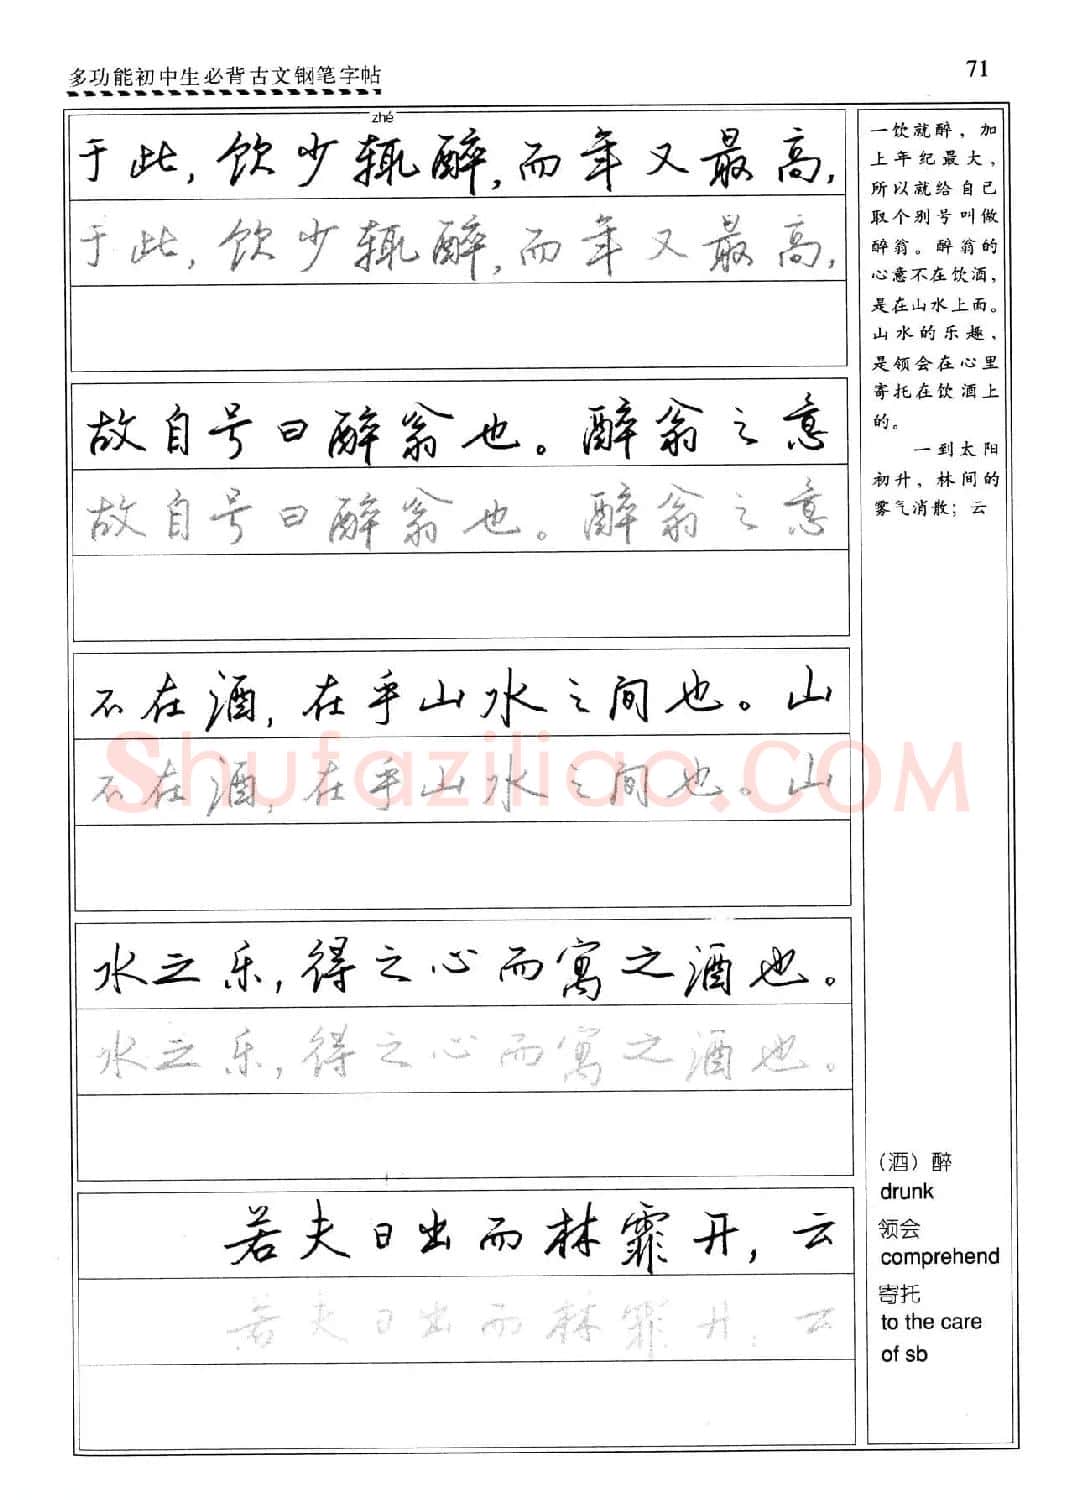 多功能初中生必背古文钢笔字帖
71
zhé
于此，饮少辄醉，而年又最高，
于此，饮少辄醉，而年又最高，
故自号曰醉翁也。醉翁之意
故自号曰醉翁也。醉翁之意
不在酒，在乎山水之间也。山
不在酒，在乎山水之间也。山
水之乐，得之心而寓之酒也。
水之乐，得之心而寓之酒也。
若夫日出而林霏开，云
若夫日出而林霏开，云
Shufaziliao.COM
一饮就醉，加
上年纪最大，
所以就给自己
取个别号叫做
醉翁。醉翁的
心意不在饮酒，
是在山水上面。
山水的乐趣，
是领会在心里
寄托在饮酒上
的。
一到太阳
初升，林间的
雾气消散；云
（酒）醉
drunk
领会
comprehend
寄托
to the care
of sb